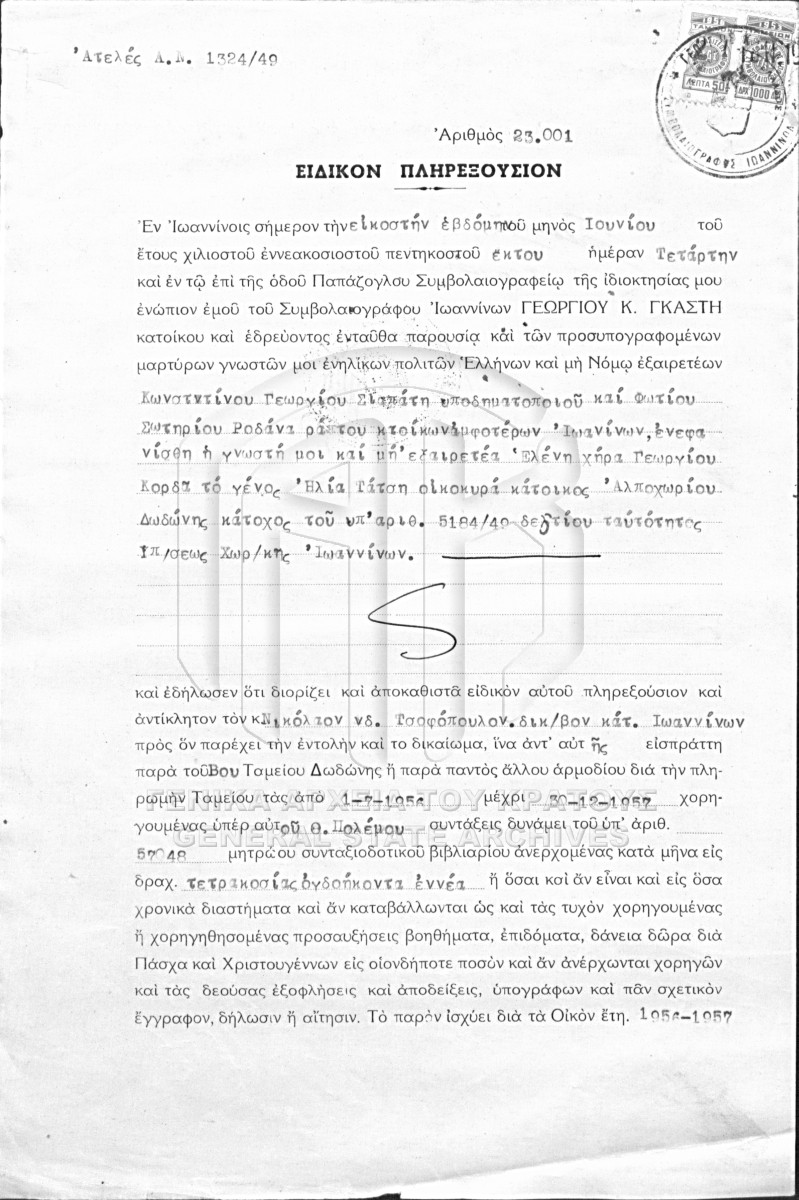 Ἀτελές Α.Ν. 1324/49
1951 1951
ΛΕΠΤΑ 50 ΔΡΧ 1000
ΣΥΜΒΟΛΑΙΟΓΡΑΦΟΣ ΙΩΑΝΝΙΝΩΝ
Ἀριθμὸς 23.001
ΕΙΔΙΚΟΝ ΠΛΗΡΕΞΟΥΣΙΟΝ
Ἐν Ἰωαννίνοις σήμερον τὴν εἰκοστήν ἑβδόμην τοῦ μηνὸς Ἰουνίου τοῦ
ἔτους χιλιοστοῦ ἐννεακοσιοστοῦ πεντηκοστοῦ ἕκτου ἡμέραν Τετάρτην
καὶ ἐν τῷ ἐπὶ τῆς ὁδοῦ Παπάζογλου Συμβολαιογραφείῳ τῆς ἰδιοκτησίας μου
ἐνώπιον ἐμοῦ τοῦ Συμβολαιογράφου Ἰωαννίνων ΓΕΩΡΓΙΟΥ Κ. ΓΚΑΣΤΗ
κατοίκου καὶ ἑδρεύοντος ἐνταῦθα παρουσίᾳ καὶ τῶν προσυπογραφομένων
μαρτύρων γνωστῶν μοι ἐνηλίκων πολιτῶν Ἑλλήνων καὶ μὴ Νόμῳ ἐξαιρετέων
Κωνσταντίνου Γεωργίου Σιαπάτη υποδηματοποιοῦ καί Φωτίου
Σωτηρίου Ροδάνα ράπτου κτοίκων ἀμφοτέρων Ἰωανίνων, ἐνεφα
νίσθη ἡ γνωστή μοι καί μή ἐξαιρετέα Ἑλένη χήρα Γεωργίου
Κορδα τό γένος Ἠλία Τάτση οἰκοκυρά κάτοικος Ἀλποχωρίου
Δωδώνης κάτοχος τοῦ υπ'αριθ. 5184/49 δελτίου ταὐτότητος
Υπ/σεως Χωρ/κης Ἰωαννίνων.
καὶ ἐδήλωσεν ὅτι διορίζει καὶ ἀποκαθιστᾶ εἰδικὸν αὑτοῦ πληρεξούσιον καὶ
ἀντίκλητον τὸν κ Νικόλαον νδ. Τσοφόπουλον.δικ/βον κάτ. Ἰωαννίνων
πρὸς ὃν παρέχει τὴν ἐντολὴν καὶ το δικαίωμα, ἵνα ἀντ' αὐτ ῆς εἰσπράττη
παρὰ τοῦ Βου Ταμείου Δωδώνης ἢ παρὰ παντὸς ἄλλου ἁρμοδίου διὰ τὴν πλη-
ρωμὴν Ταμείου τὰς ἀπὸ 1-7-1956 μέχρι 30-12-1957 χορη-
ΓΕΝΙΚΑ ΑΡΧΕΙΑ ΤΟΥ ΚΡΑΤΟΥΣ
γουμένας ὑπὲρ αὐτοῦ Θ. Πολέμου συντάξεις δυνάμει τοῦ ὑπ' ἀριθ.
GENERAL STATE ARCHIVES
57048 μητρώου συνταξιοδοτικοῦ βιβλιαρίου ἀνερχομένας κατὰ μῆνα εἰς
δραχ. τετρακοσίας ὀγδοήκοντα ἐννέα ἢ ὅσαι καὶ ἂν εἶναι καὶ εἰς ὅσα
χρονικὰ διαστήματα καὶ ἂν καταβάλλωνται ὡς καὶ τὰς τυχὸν χορηγουμένας
ἢ χορηγηθησομένας προσαυξήσεις βοηθήματα, ἐπιδόματα, δάνεια δῶρα διὰ
Πάσχα καὶ Χριστουγέννων εἰς οἱονδήποτε ποσὸν καὶ ἂν ἀνέρχωνται χορηγῶν
καὶ τὰς δεούσας ἐξοφλήσεις καὶ ἀποδείξεις, ὑπογράφων καὶ πᾶν σχετικὸν
ἔγγραφον, δήλωσιν ἢ αἴτησιν. Τὸ παρὸν ἰσχύει διὰ τὰ Οἰκὸν ἔτη. 1956-1957